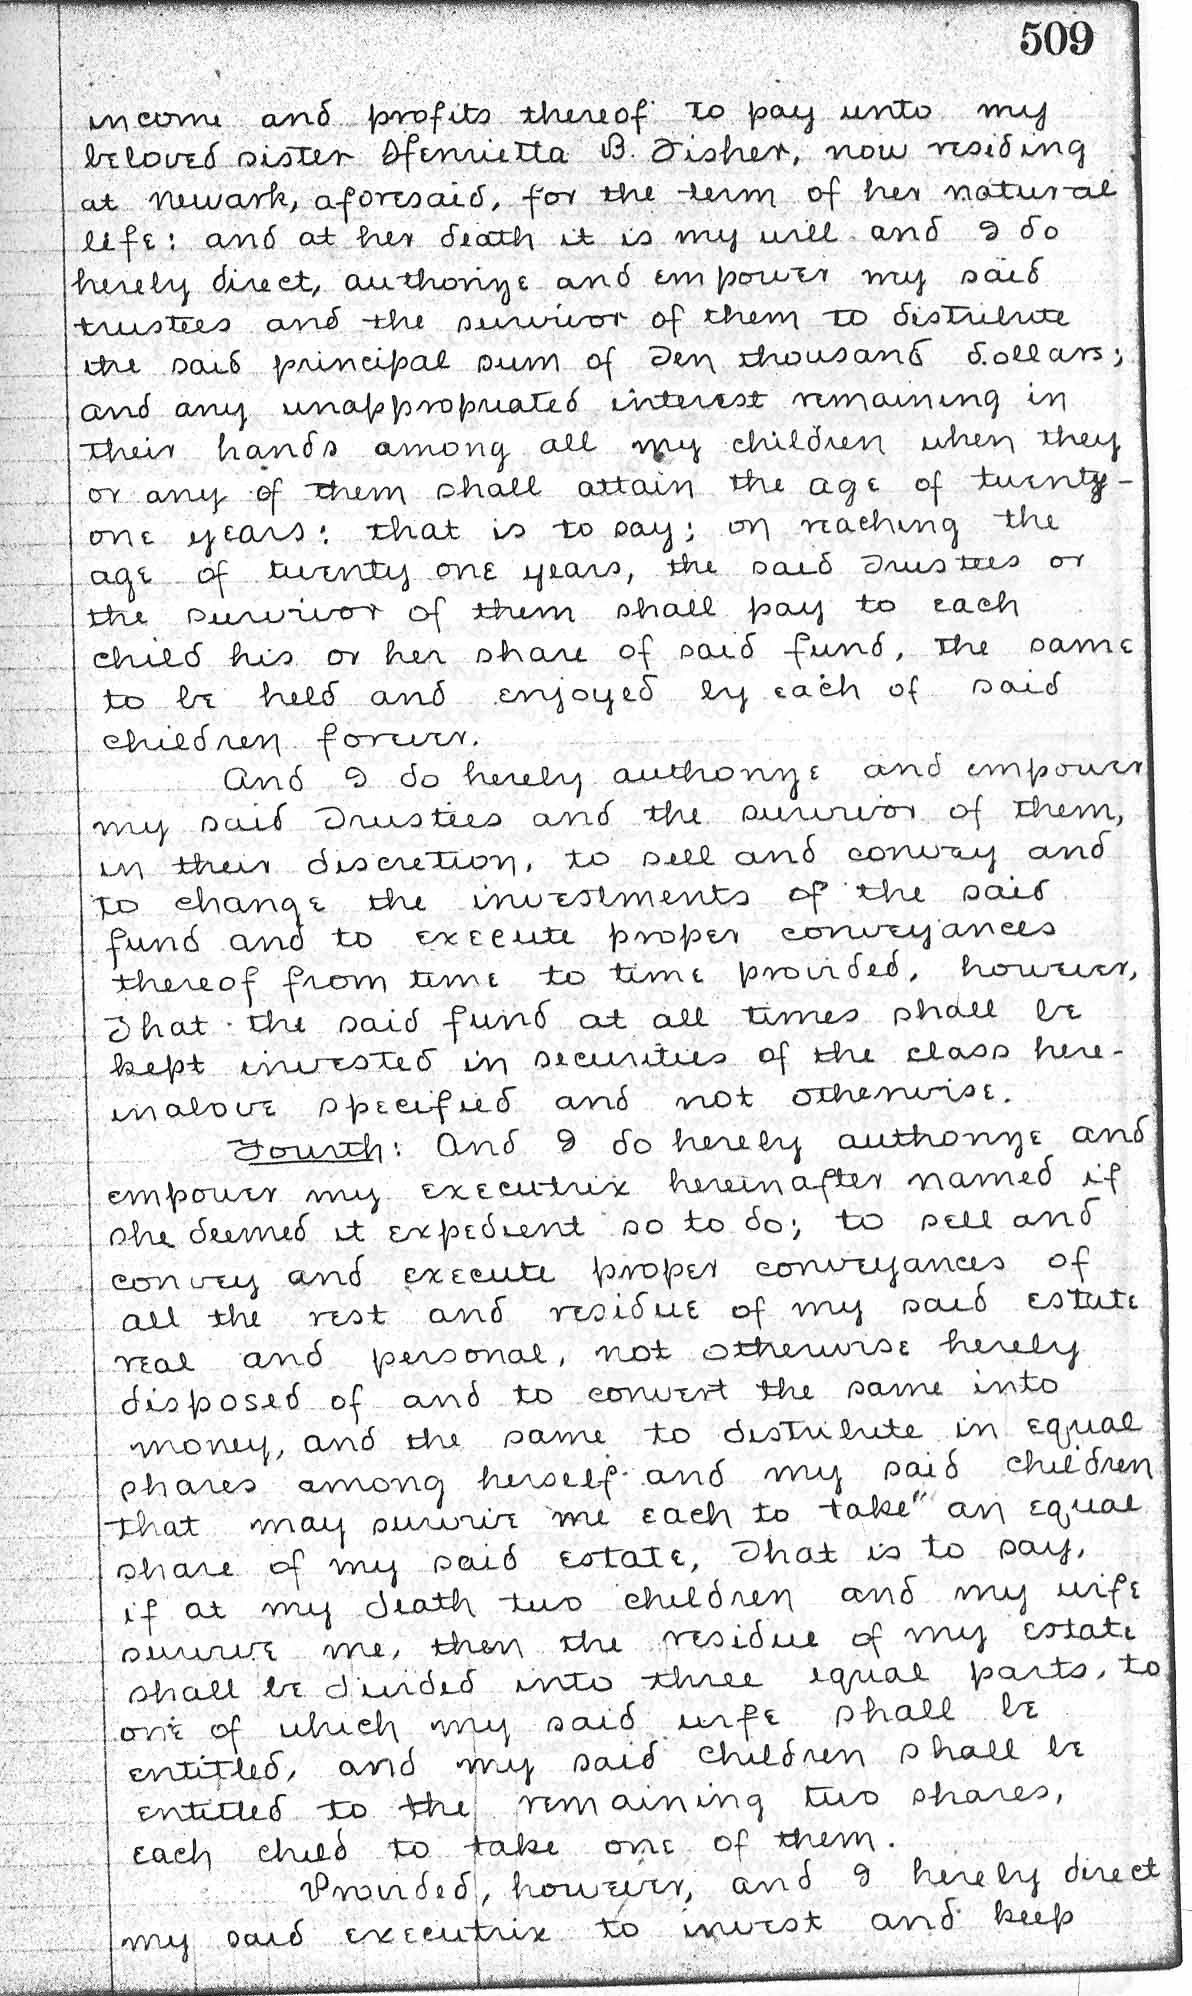 509
income and profits thereof to pay unto my
beloved sister Henrietta B. Fisher, now residing
at Newark, aforesaid, for the term of her natural
life: and at her death it is my will and I do
hereby direct, authorize and empower my said
trustees and the survivor of them to distribute
the said principal sum of Ten thousand dollars;
and any unappropriated interest remaining in
their hands among all my children when they
or any of them shall attain the age of twenty-
one years: that is to say; on reaching the
age of twenty one years, the said Trustees or
the survivor of them shall pay to each
child his or her share of said fund, the same
to be held and enjoyed by each of said
children forever.
And I do hereby authorize and empower
my said Trustees and the survivor of them,
in their discretion, to sell and convey and
to change the investments of the said
fund and to execute proper conveyances
thereof from time to time provided, however,
That the said fund at all times shall be
kept invested in securities of the class here-
inabove specified and not otherwise.
Fourth: And I do hereby authorize and
empower my executrix hereinafter named if
she deemed it expedient so to do; to sell and
convey and execute proper conveyances of
all the rest and residue of my said estate
real and personal, not otherwise hereby
disposed of and to convert the same into
money, and the same to distribute in equal
shares among herself and my said children
that may survive me each to take" an equal
share of my said estate, That is to say,
if at my death two children and my wife
survive me, then the residue of my estate
shall be divided into three equal parts, to
one of which my said wife shall be
entitled, and my said children shall be
entitled to the remaining two shares,
each child to take one of them.
Provided, however, and I hereby direct
my said executrix to invest and keep